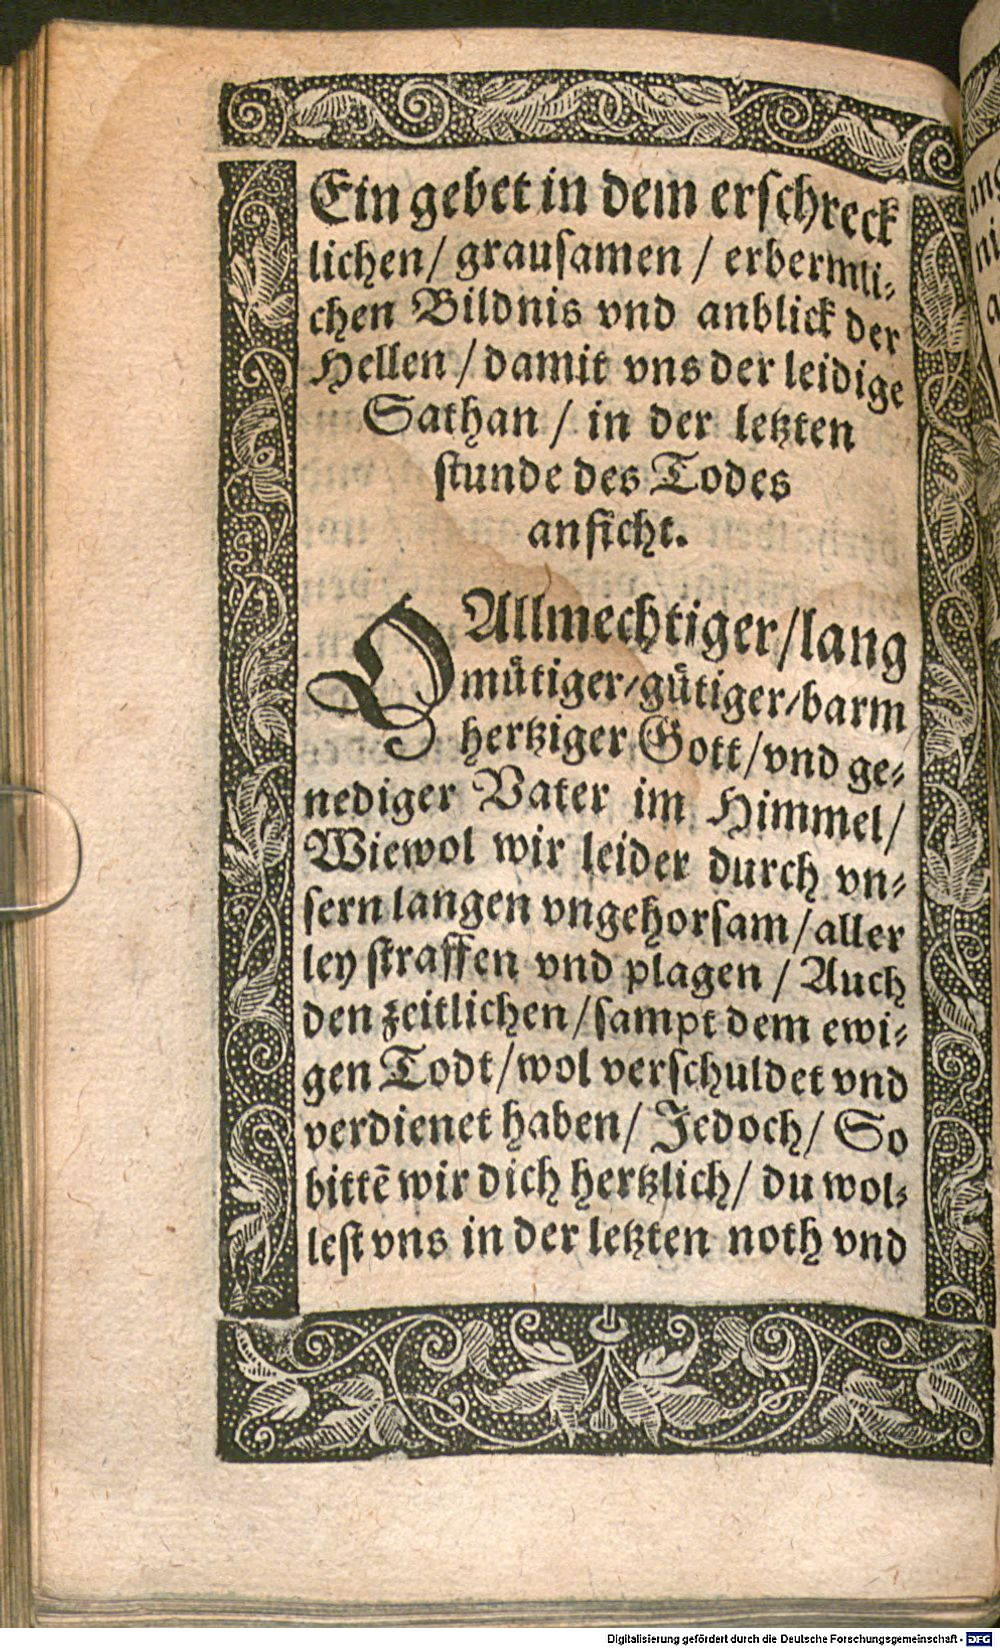 Ein gebet in dem erschreck
lichen/ grausamen / erbermli⸗
chen Bildnis vnd anblick der
Hellen / damit vns der leidige
Sathan / in der letzten
stunde des Todes
anficht.
O Allmechtiger/lang
muͤtiger/guͤtiger/barm
hertziger Gott/vnd ge⸗
nediger Vater im Himmel/
Wiewol wir leider durch vn⸗
sern langen vngehorsam/aller
ley straffen vnd plagen / Auch
den zeitlichen/sampt dem ewi⸗
gen Todt/wol verschuldet vnd
verdienet haben/ Jedoch/ So
bittē wir dich hertzlich/ du wol⸗
lest vns in der letzten noth vnd
Digitalisierung gefördert durch die Deutsche Forschungsgemeinschaft - DFG